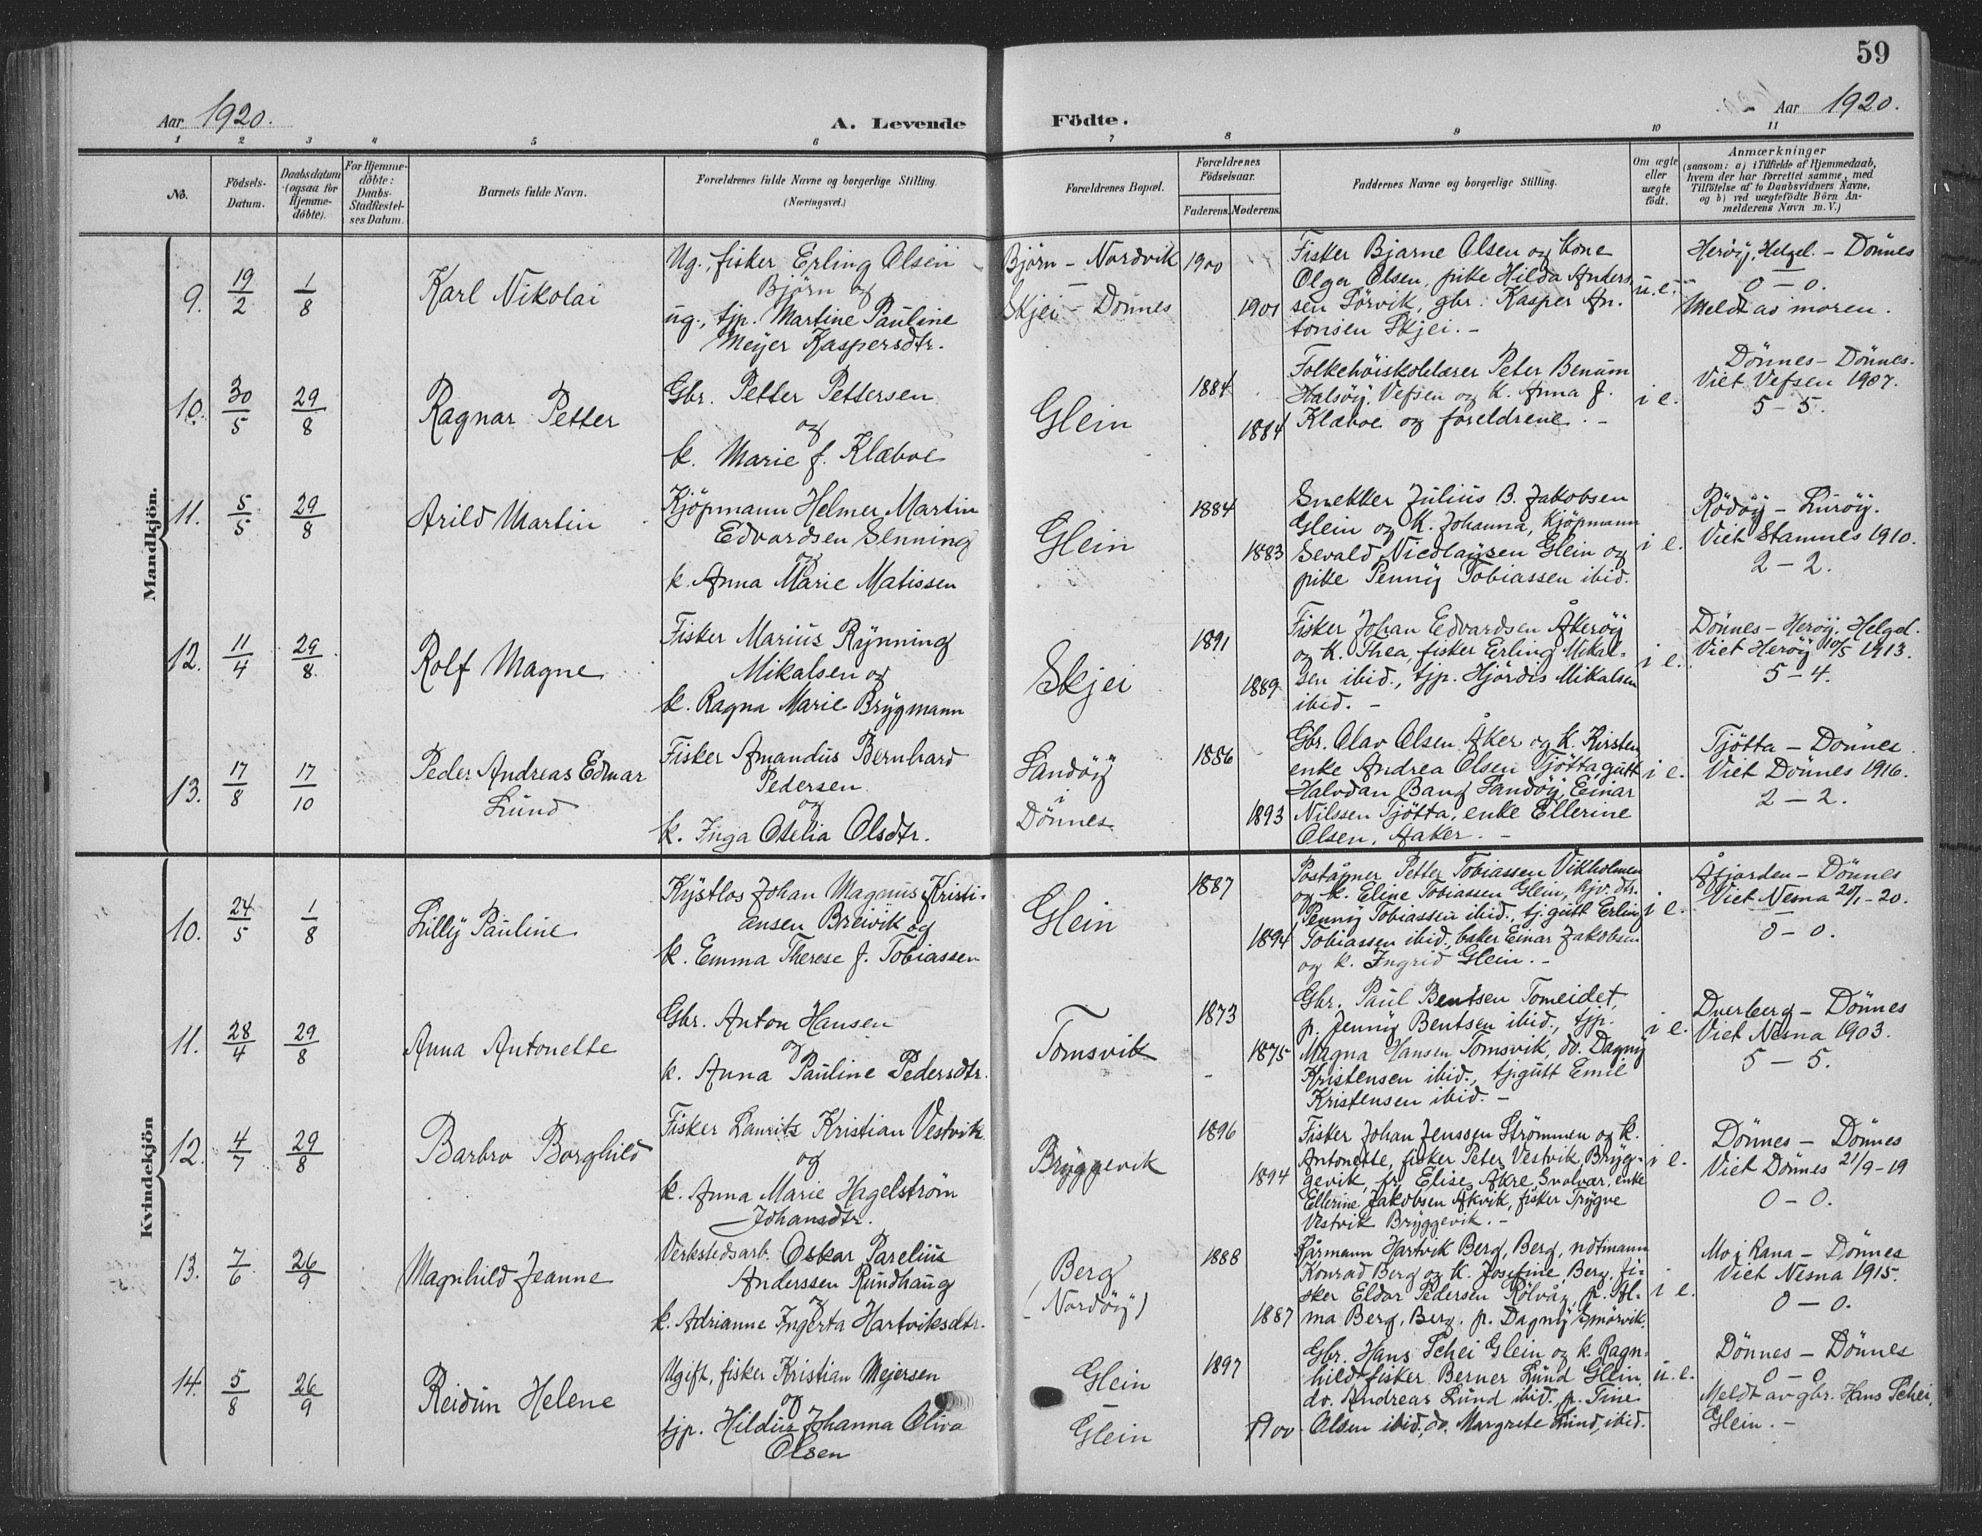 59
Aar 1920.
A. Levende
Födte.
Aar 1920.
1 2 3 4 5 6 7 8 9 10 11
No.
Födsels-
Datum.
Daabsdatum
(ogsaa for
Hjemme-
döbte).
For Hjemme-
döbte:
Daabs-
Stadfæstel-
ses Datum.
Barnets fulde Navn.
Forældrenes fulde Navne og borgerlige Stilling.
(Næringsvei.)
Forældrenes Bopæl.
Forældrenes
Födselsaar.
Faderens. Moderens.
Faddernes Navne og borgerlige Stilling.
Om ægte
eller
uægte
födt.
Anmærkninger
(saasom: a) i Tilfælde af Hjemmedaab,
hvem der har forrettet samme, med
Tilföielse af to Daabsvidners Navne,
og b) ved uægtefödte Börn An-
melderens Navn m. V.)
Mandkjön.
9. 19/2 1/8 Karl Nikolai
Ug., fisker Erling Olsen
Björn og
ug., tjp. Martine Pauline
Meyer Kaspersdtr.
Björn – Nordvik
Skjei – Dönnes
1900
1901
Fisker Bjarne Olsen og kone
Olga Olsen, pike Hilda Anders
sen Sörvik, gbr. Kasper An-
tonsen Skjei. –
u. e.
Heröy, Helgel. – Dönnes
0 – 0.
Meldt av moren.
10. 30/5 29/8 Ragnar Petter
Gbr. Petter Pettersen
og
k. Marie f. Klæboe
Glein
1884
1884
Folkehöiskolelærer Peter Benum
Halsöy, Vefsen og k. Anna f.
Klæboe og foreldrene. –
i e.
Dönnes – Dönnes.
Viet Vefsen 1907.
5 – 5.
11. 5/5 29/8 Arild Martin
Kjöpmann Helmer Martin
Edvardsen Senning
og
k. Anna Marie Matissen
Glein
1884
1883
Snekker Julius B. Jakobsen
Glein og k. Johanna, kjöpmann
Sevald Nicolaysen Glein og
pike Penny Tobiassen ibid.
i e.
Rödöy – Luröy.
Viet Stamnes 1910.
2 – 2.
12. 11/4 29/8 Rolf Magne
Fisker Marius Rynning
Mikalsen og
k. Ragna Marie Brygmann
Skjei
1891
1889
Fisker Johan Edvardsen Åkeröy
og k. Thea, fisker Erling Mikal-
sen ibid., tjp. Hjördis Mikalsen
ibid. –
i e.
Dönnes – Heröy, Helgel.
Viet Heröy 10/5 1913.
5 – 4.
13. 17/8 17/10 Peder Andreas Edmar
Lund
Fisker Amandus Bernhard
Pedersen
og
k. Inga Otelia Olsdtr.
Sandöy
i
Dönnes
1886
1893
Gbr. Olav Olsen Åker og k. Kirsten
enke Andrea Olsen Tjötta, gutt
Halvdan Bang Sandöy, Einar
Nilssen Tjötta, enke Ellerine
Olsen, Aaker. –
i e.
Tjötta – Dönnes
Viet Dönnes 1916.
2 – 2.
Kvindekjön
10. 24/5 1/8 Lilly Pauline
Kystlos Johan Magnus Kristi-
ansen Breivik og
k. Emma Therese f. Tobiassen
Glein
1887
1894
Poståpner Petter Tobiassen Vikholmen
og k. Eline Tobiassen Glein, hjv. dtr.
Penny Tobiassen ibid., tj. gutt Erling
Tobiassen ibid., baker Einar Jakobsen
og k. Ingrid Glein. –
i e.
Åfjorden – Dönnes
Viet Nesna 20/1 – 20.
0 – 0.
11. 28/4 29/8 Anna Antonette
Gbr. Anton Hansen
og
k. Anna Pauline Pedersdtr.
Tomsvik
1873
1875
Gbr. Paul Bentsen Tomeidet,
p. Jenny Bentsen ibid., tjp.
Magna Hansen Tomsvik, do. Dagny
Kristensen ibid., tj. gutt Emil
Kristensen ibid. –
i e.
Dverberg – Dönnes
Viet Nesna 1903.
5 – 5.
12. 4/7 29/8 Barbro Borghild
Fisker Lauritz Kristian Vestvik
og
k. Anna Marie Hagelström
Johansdtr.
Bryggevik
1896
1894
Fisker Johan Jenssen Strömmen og k.
Antonette, fisker Peter Vestvik, Bryg-
gevik, fr. Elise Åkre, Svolvær, enke
Ellerine Jakobsen Åkvik, fisker Trygve
Vestvik Bryggevik. –
i e.
Dönnes – Dönnes
Viet Dönnes 21/9 – 19
0 – 0.
13. 7/6 26/9 Magnhild Jeanne
Verkstedsarb. Oskar Parelius
Anderssen Rundhaug
og
k. Adrianne Ingerta Hartviksdtr.
Berg
(Nordöy)
1888
1887
Kårmann Hartvik Berg, Berg, notmann
Konrad Berg og k. Josefine Berg, fi-
sker Eldor Pedersen Rölvåg, p. Al-
ma Berg, Berg, p. Dagny Smörvik.
i e.
Mo i Rana – Dönnes
Viet Nesna 1915.
0 – 0.
14. 5/8 26/9 Reidun Helene
Ugift, fisker Kristian Mejersen
og
tjp. Hildur Johanna Oliva
Olsen
Glein
–
Glein
1897
1900
Gbr. Hans Schei Glein og k. Ragn-
hild, fisker Berner Lund Glein,
do. Andreas Lund ibid. p. Tine
Olsen ibid., do. Margrete Lund, ibid.
u. e.
Dönnes – Dönnes
0 – 0
Meldt av gbr. Hans Schei,
Glein. –